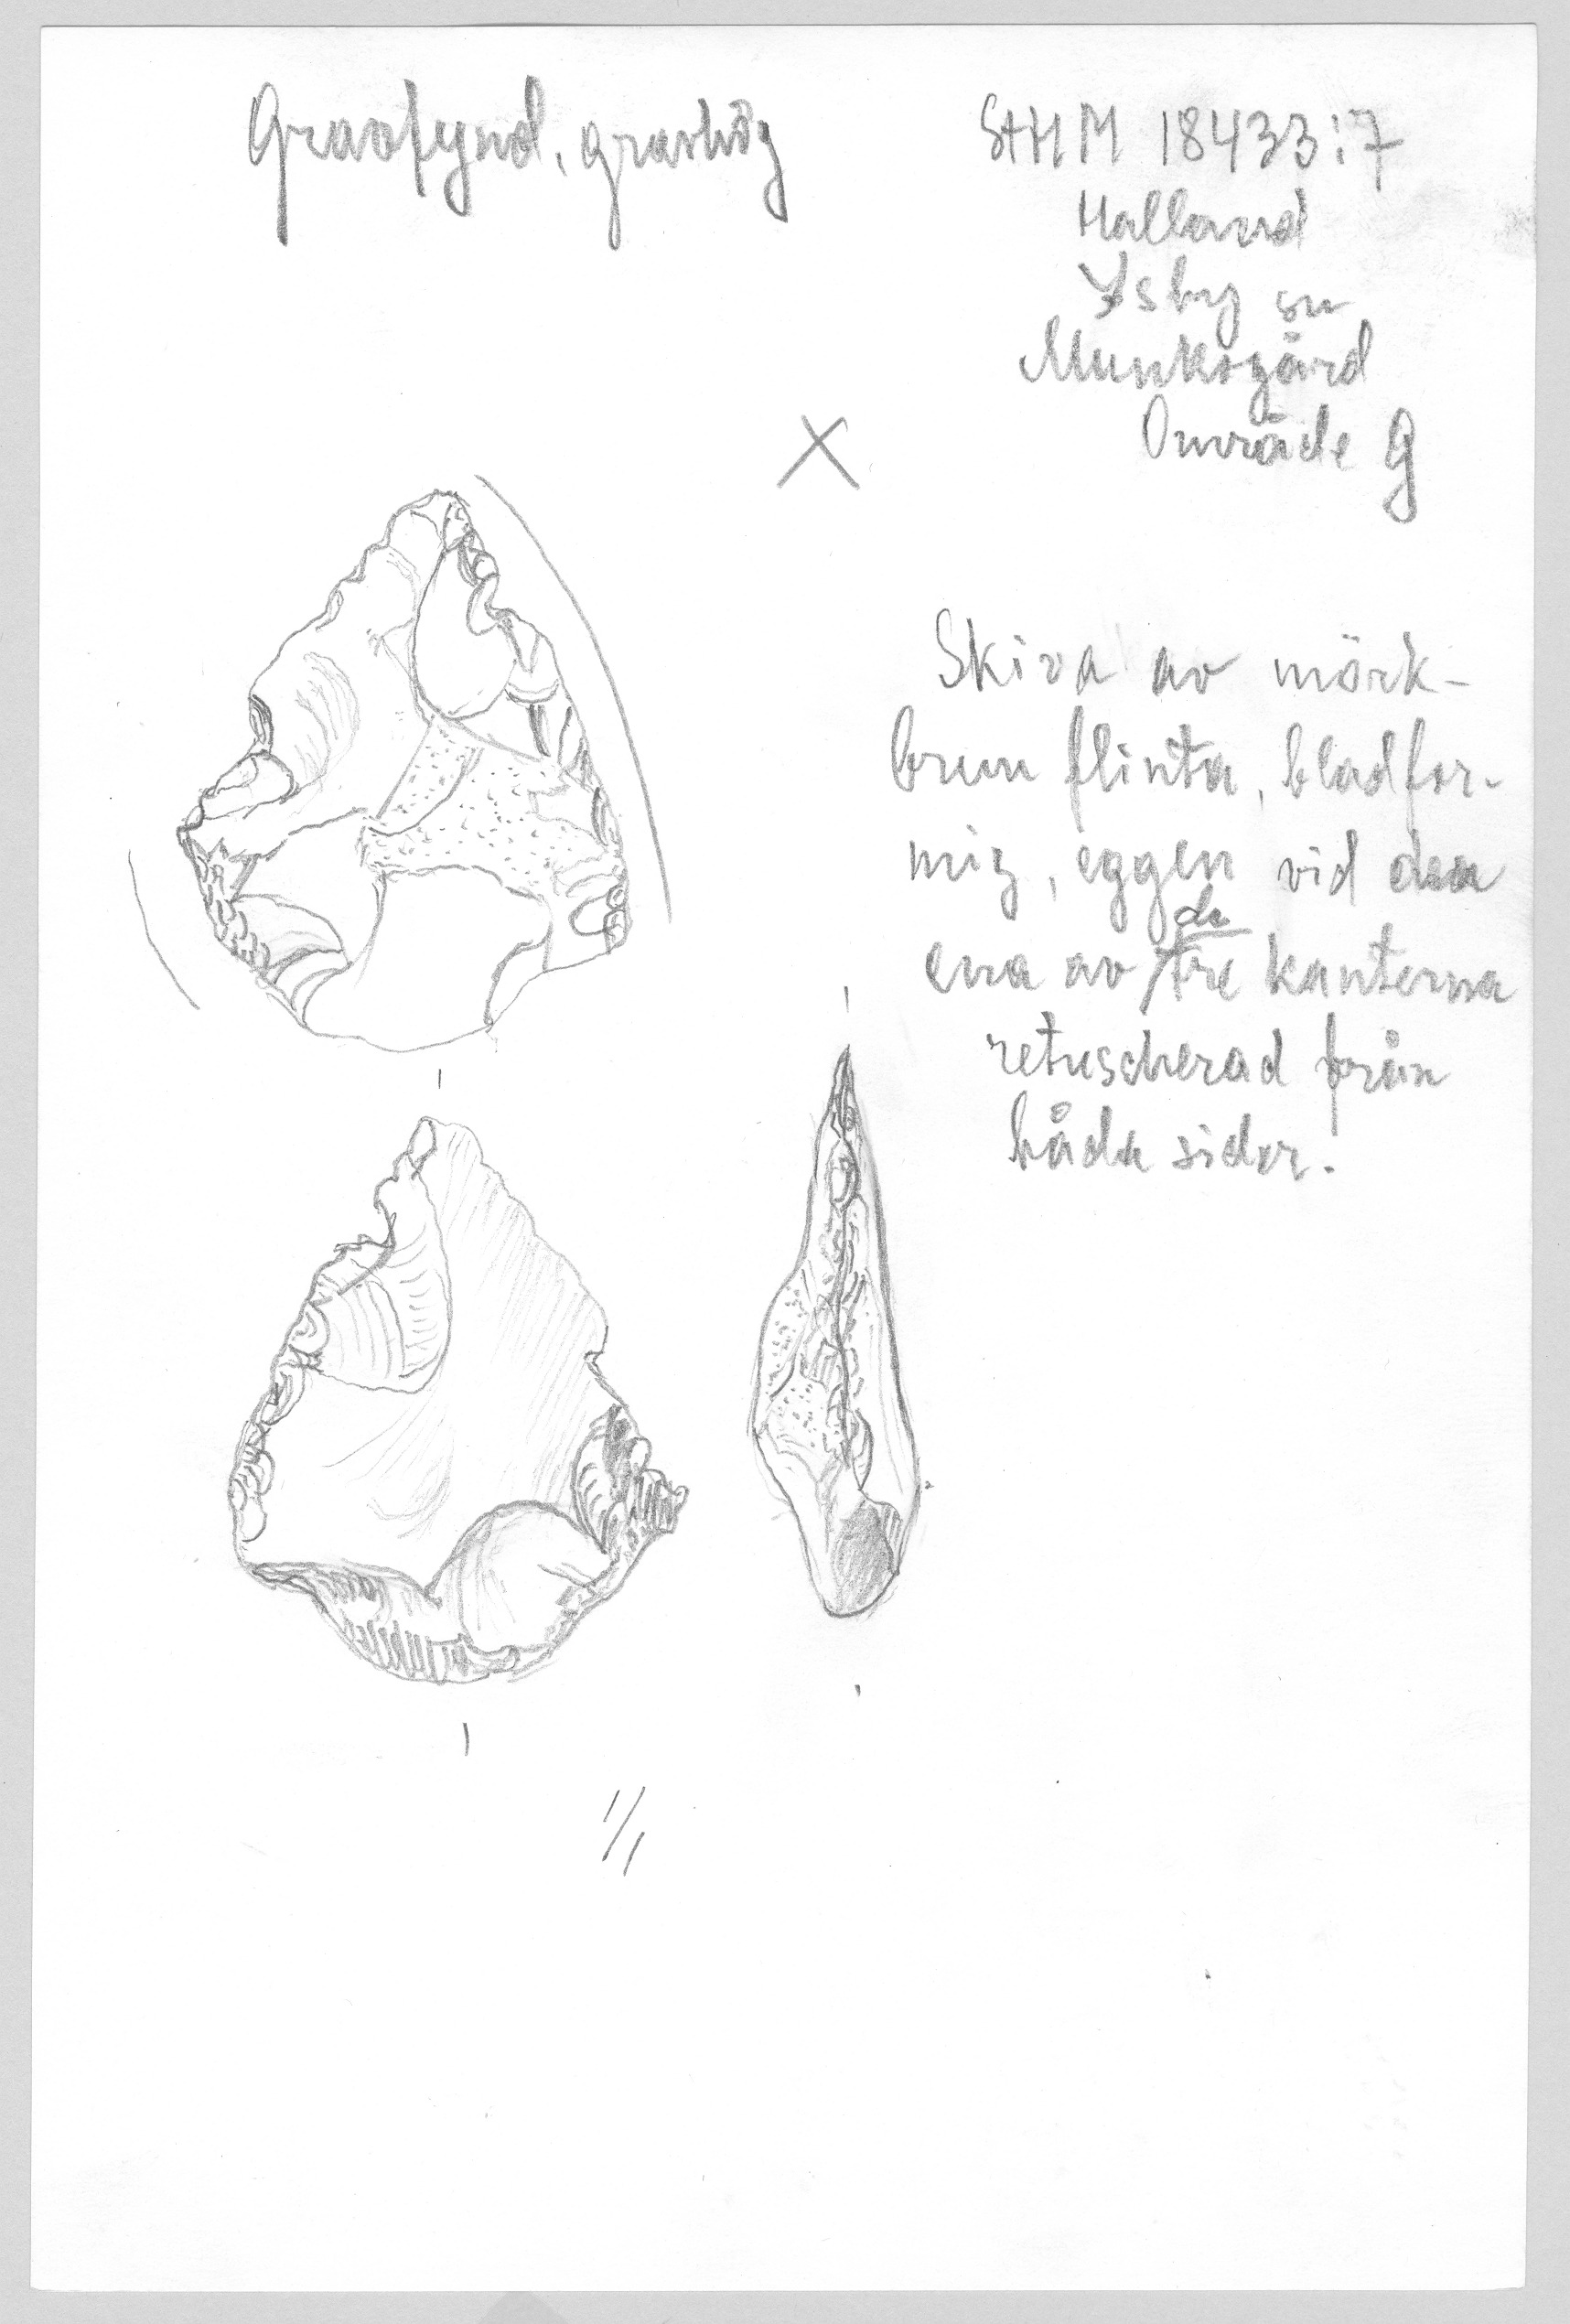 Gravfynd, gravhög
StHM 18433:7
Halland
Ysby sn
Munksgård
Område G
Skiva av mörk-
brun flinta, bladfor-
mig, eggen vid den
ena av de tre kanterna
retuscherad från
båda sidor.
1/1